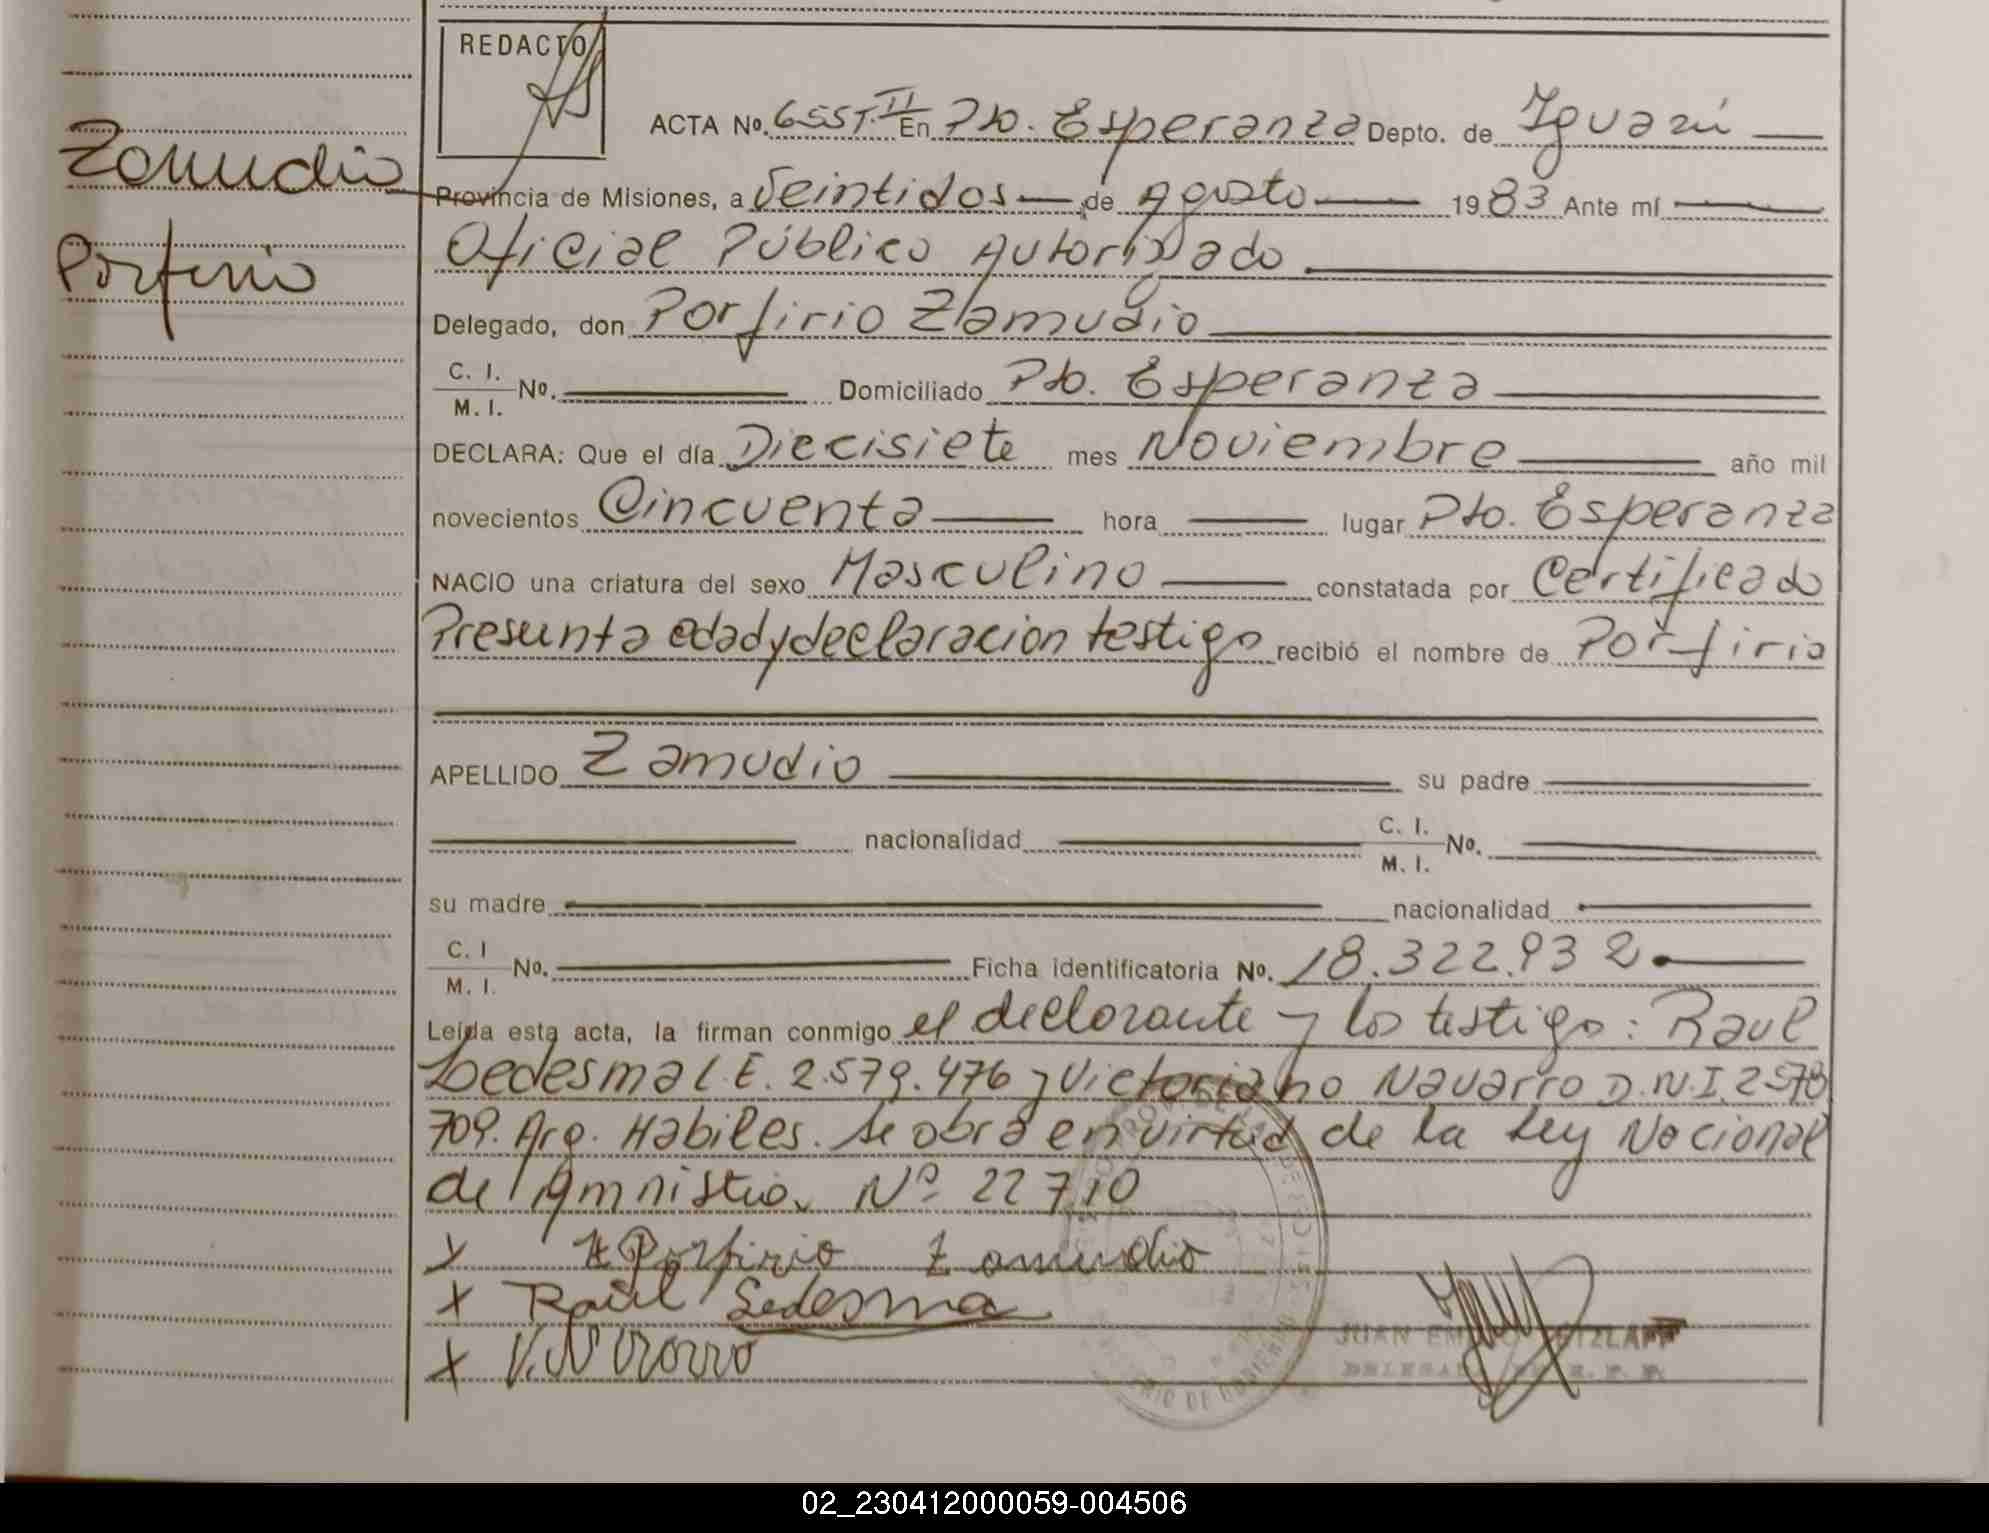 REDACTO
ACTA Nº. 655 T. II En Pto. Esperanza Depto. de Iguazú
Zamudio
Provincia de Misiones, a Veintidos de Agosto 1983 Ante mí
Porfirio
Oficial Público Autorizado
Delegado, don Porfirio Zamudio
C. I.
M. I. Nº. Domiciliado Pto. Esperanza
DECLARA: Que el día Diecisiete mes Noviembre año mil
novecientos Cincuenta hora lugar Pto. Esperanza
NACIO una criatura del sexo Masculino constatada por Certificado
Presunta edad y declaracion testigo recibió el nombre de Porfirio
APELLIDO Zamudio su padre
nacionalidad C. I. M. I. Nº.
su madre nacionalidad
C. I M. I. Nº. Ficha identificatoria Nº. 18.322.932
Leída esta acta, la firman conmigo el declarante y los testigo: Raul
Ledesma L.E. 2.579.476 y Victoriano Navarro D.N.I. 2578
709. Arg. Habiles. Se obra en virtud de la Ley Nacional
de Amnistia Nº 22710
x Porfirio Zamudio
x Raúl Ledesma
x V. Navarro
JUAN
02_230412000059-004506